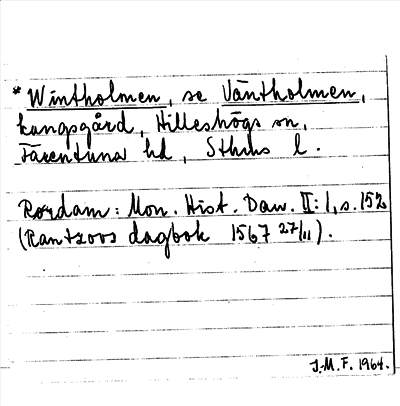 * Wintholmen, se Väntholmen,
kungsgård, Hilleshögs sn,
Färentuna hd, Sthlms l.
Rørdam: Mon. Hist. Dan. II: 1, s. 152
(Rantzovs dagbok 1567 27/11).
J.M.F. 1964.